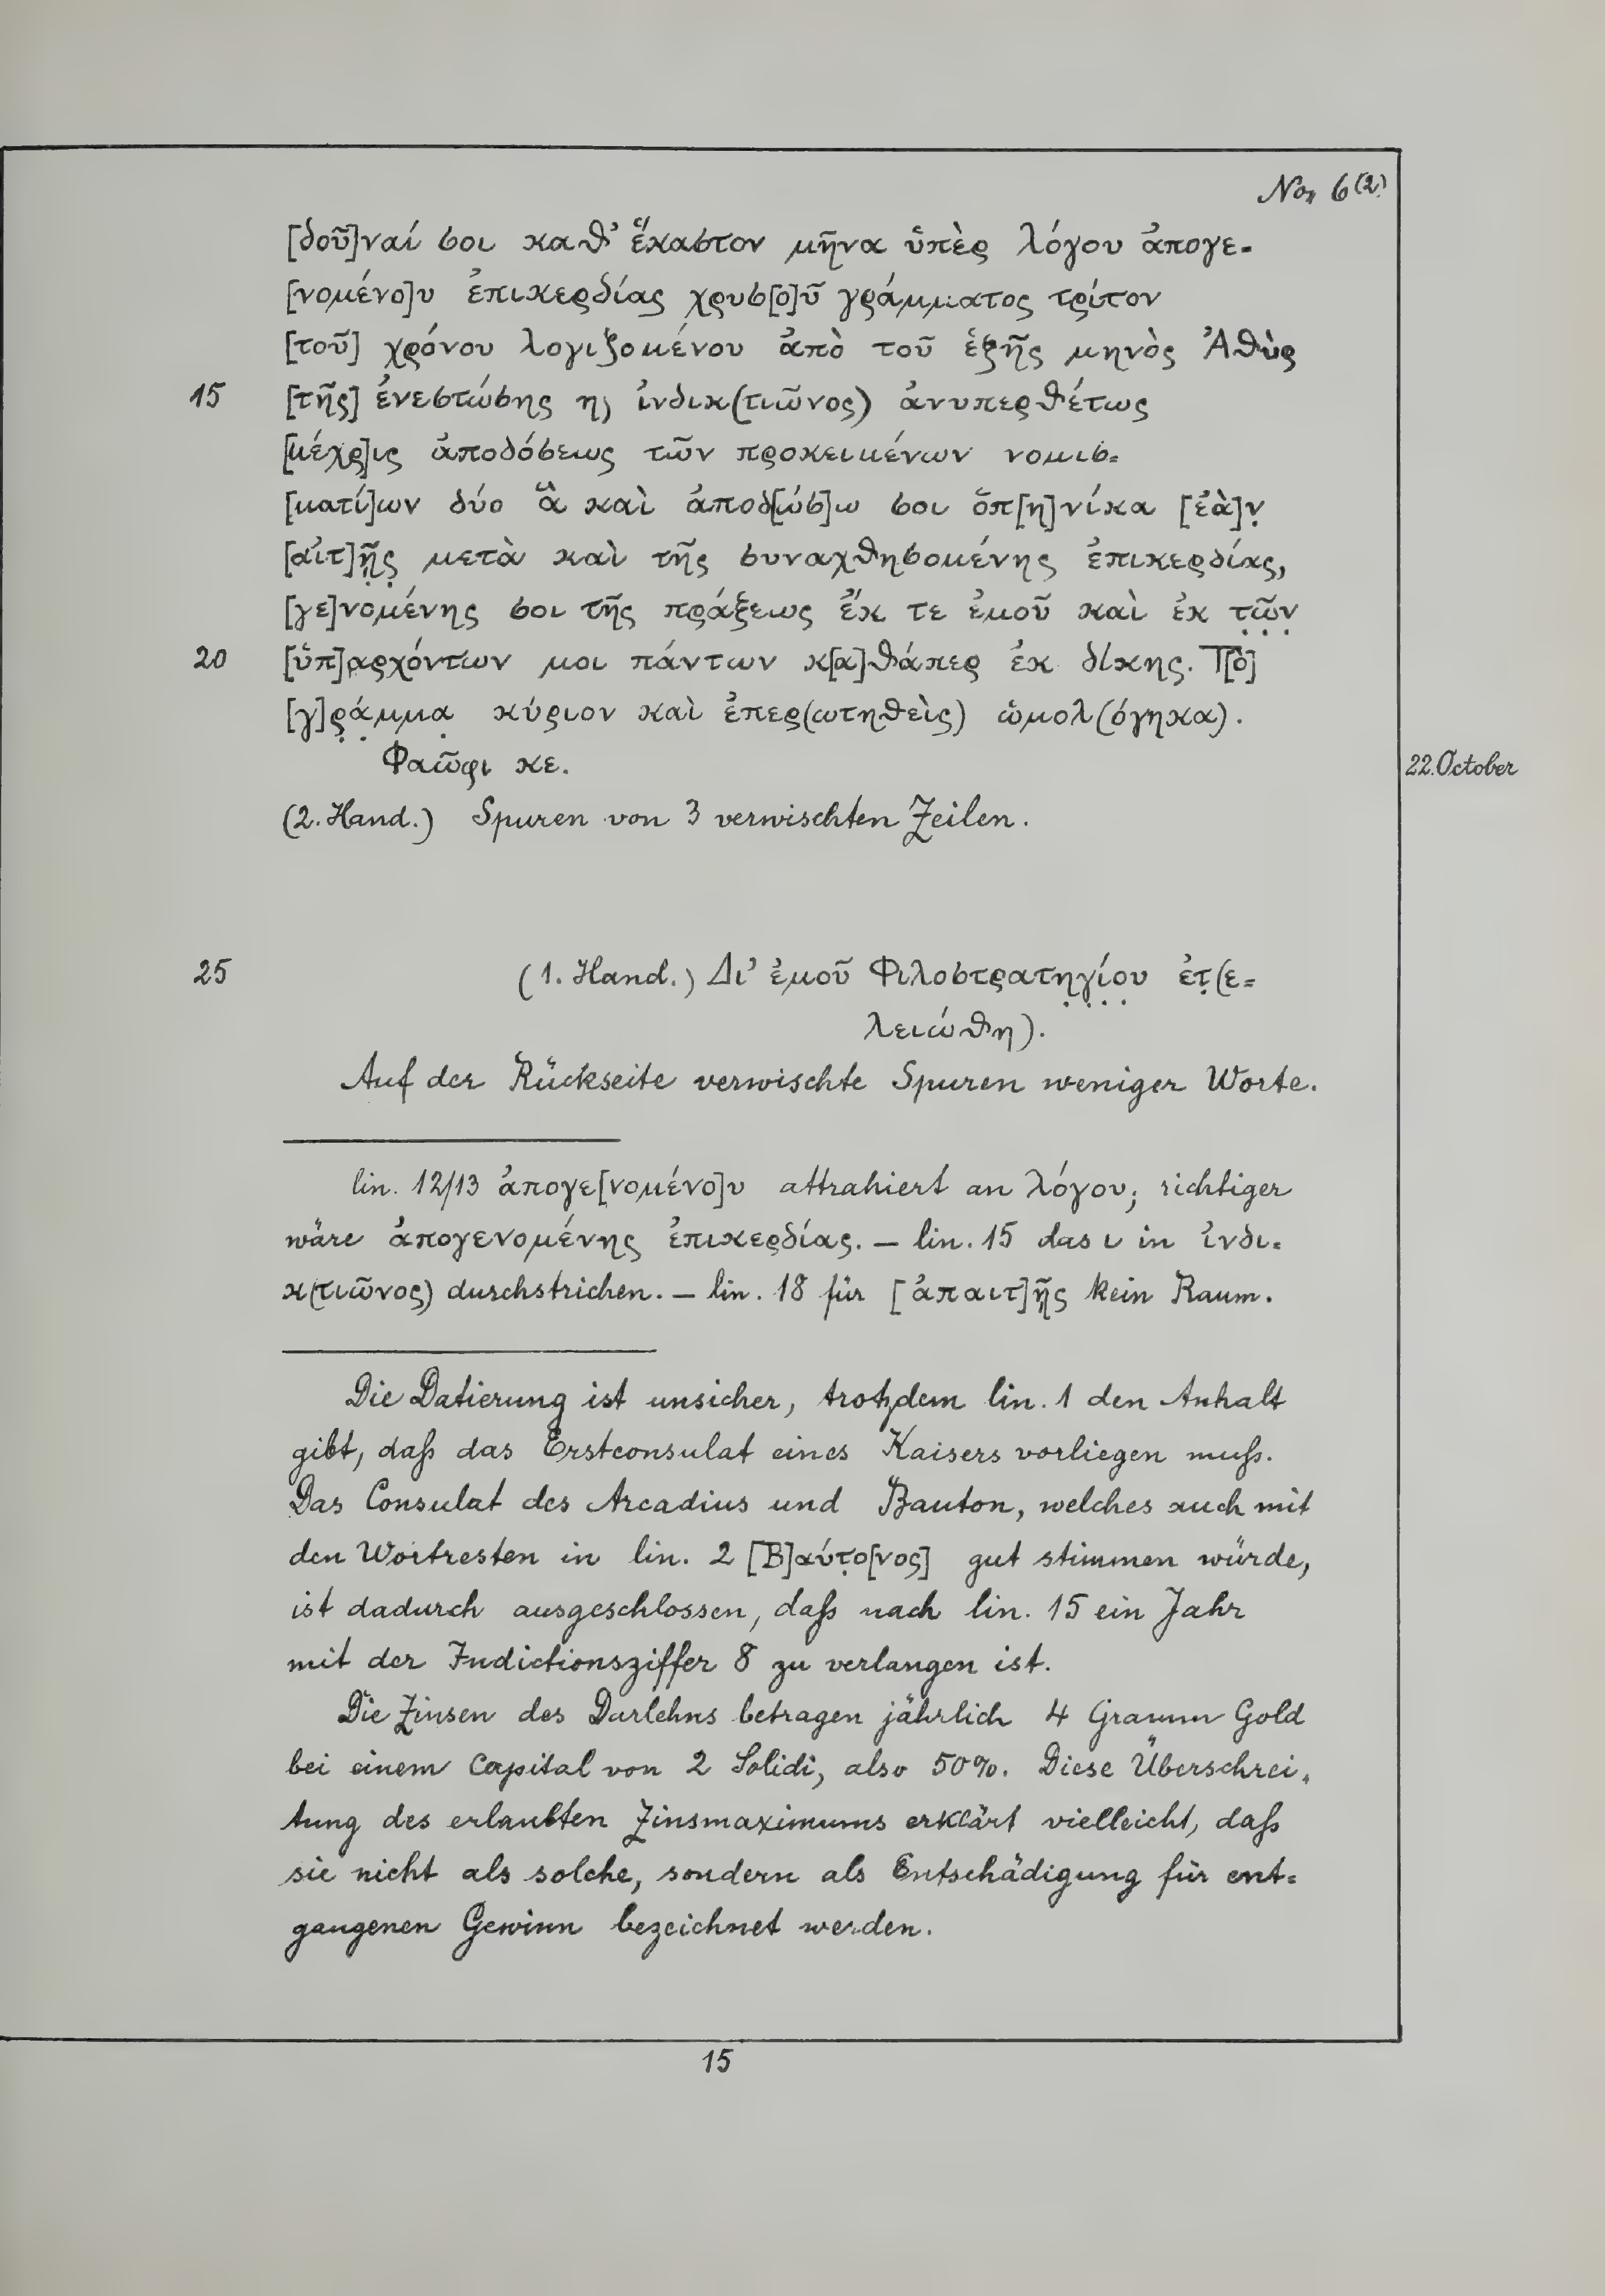 No. 6 (2)
[δοῦ]ναί σοι καθ’ ἕκαστον μῆνα ὑπὲρ λόγου ἀπογε-
[νομένο]υ ἐπικερδίας χρυσ[ο]ῦ γράμματος τρίτον
[τοῦ] χρόνου λογιζομένου ἀπὸ τοῦ ἑξῆς μηνὸς Ἁθὺρ
15 [τῆς] ἐνεστώσης η, ἰνδικ(τιῶνος) ἀνυπερθέτως
[μέχρ]ις ἀποδόσεως τῶν προκειμένων νομισ-
[ματί]ων δύο ἃ καὶ ἀποδ[ώσ]ω σοι ὁπ[η]νίκα [ἐὰ]ν̣
[αἰτ]ῇ̣ς̣ μετὰ καὶ τῆς συναχθησομένης ἐπικερδίας,
[γε]νομένης σοι τῆς πράξεως ἔκ τε ἐμοῦ καὶ ἐκ τ̣ῶ̣ν̣
20 [ὑπ]αρχόντων μοι πάντων κ[α]θάπερ ἐκ δίκης. Τ[ὸ]
[γ]ρ̣ά̣μμα̣ κύριον καὶ ἐπερ(ωτηθεὶς) ὡμολ(όγηκα).
Φαῶφι κε.
22. October
(2. Hand.) Spuren von 3 verwischten Zeilen.
25 (1. Hand.) Δι’ ἐμοῦ Φιλοστρατη̣γ̣ί̣ο̣υ ἐτ̣(ε-
λειώθη).
Auf der Rückseite verwischte Spuren weniger Worte.
lin. 12/13 ἀπογε[νομένο]υ attrahiert an λόγου; richtiger
wäre ἀπογενομένης ἐπικερδίας. — lin. 15 das ι in ἰνδι-
κ(τιῶνος) durchstrichen. — lin. 18 für [ἀπαιτ]ῇς kein Raum.
Die Datierung ist unsicher, trotzdem lin. 1 den Anhalt
gibt, daß das Erstconsulat eines Kaisers vorliegen muß.
Das Consulat des Arcadius und Bauton, welches auch mit
den Wortresten in lin. 2 [Β]αύτ̣ο[νος] gut stimmen würde,
ist dadurch ausgeschlossen, daß nach lin. 15 ein Jahr
mit der Indictionsziffer 8 zu verlangen ist.
Die Zinsen des Darlehns betragen jährlich 4 Gramm Gold
bei einem Capital von 2 Solidi, also 50%. Diese Überschrei-
tung des erlaubten Zinsmaximums erklärt vielleicht, daß
sie nicht als solche, sondern als Entschädigung für ent-
gangenen Gewinn bezeichnet werden.
15